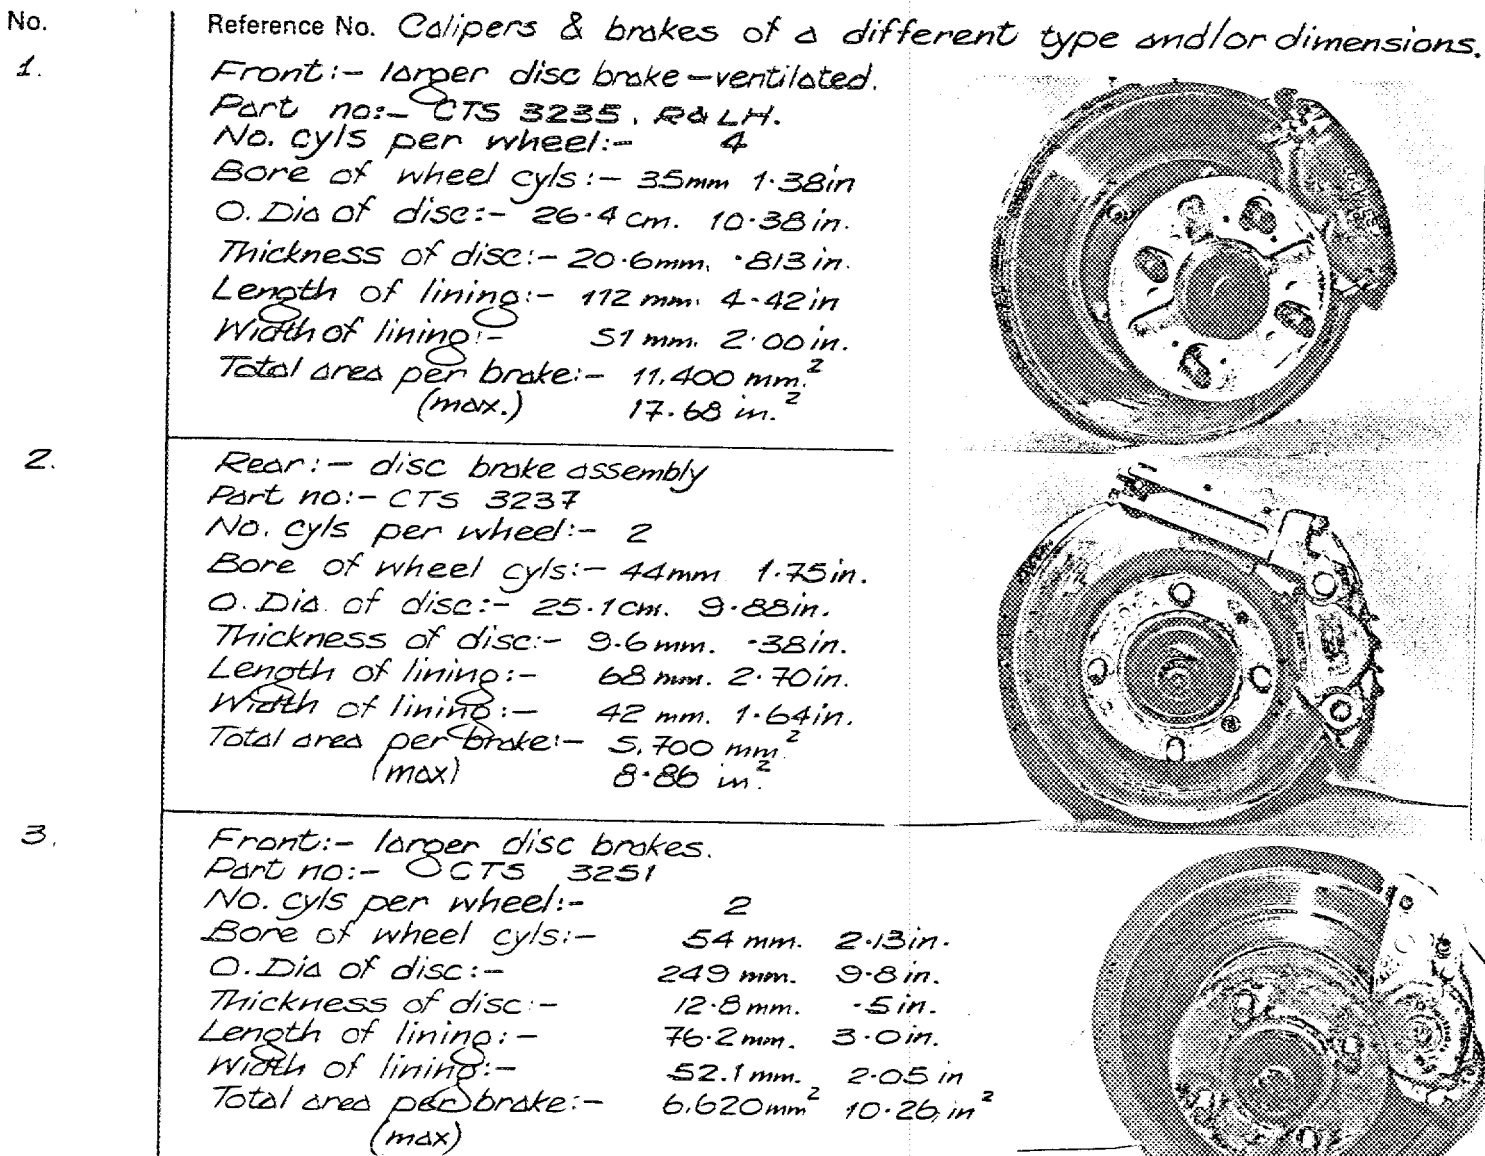 No.
Reference No. Calipers & brakes of a different type and/or dimensions.
1.
Front:- larger disc brake - ventilated.
Part no:- CTS 3235, R & LH.
No. cyls per wheel:- 4
Bore of wheel cyls:- 35mm 1·38in
O. Dia of disc:- 26·4 cm. 10·38 in.
Thickness of disc:- 20·6mm. ·813 in.
Length of lining:- 112 mm. 4·42in
Width of lining:- 51 mm. 2·00 in.
Total area per brake:- 11,400 mm.²
(max.) 17·68 in.²
2.
Rear:- disc brake assembly
Part no:- CTS 3237
No. cyls per wheel:- 2
Bore of wheel cyls:- 44mm 1·75in.
O. Dia. of disc:- 25·1cm. 9·88in.
Thickness of disc:- 9·6mm. ·38in.
Length of lining:- 68 mm. 2·70in.
Width of lining:- 42 mm. 1·64in.
Total area per brake:- 5,700 mm.²
(max) 8·86 in.²
3.
Front:- larger disc brakes.
Part no:- CTS 3251
No. cyls per wheel:- 2
Bore of wheel cyls:- 54 mm. 2·13in.
O. Dia of disc:- 249 mm. 9·8in.
Thickness of disc:- 12·8mm. ·5in.
Length of lining:- 76·2mm. 3·0in.
Width of lining:- 52.1mm. 2·05 in
Total area per brake:- 6,620mm² 10·26 in²
(max)